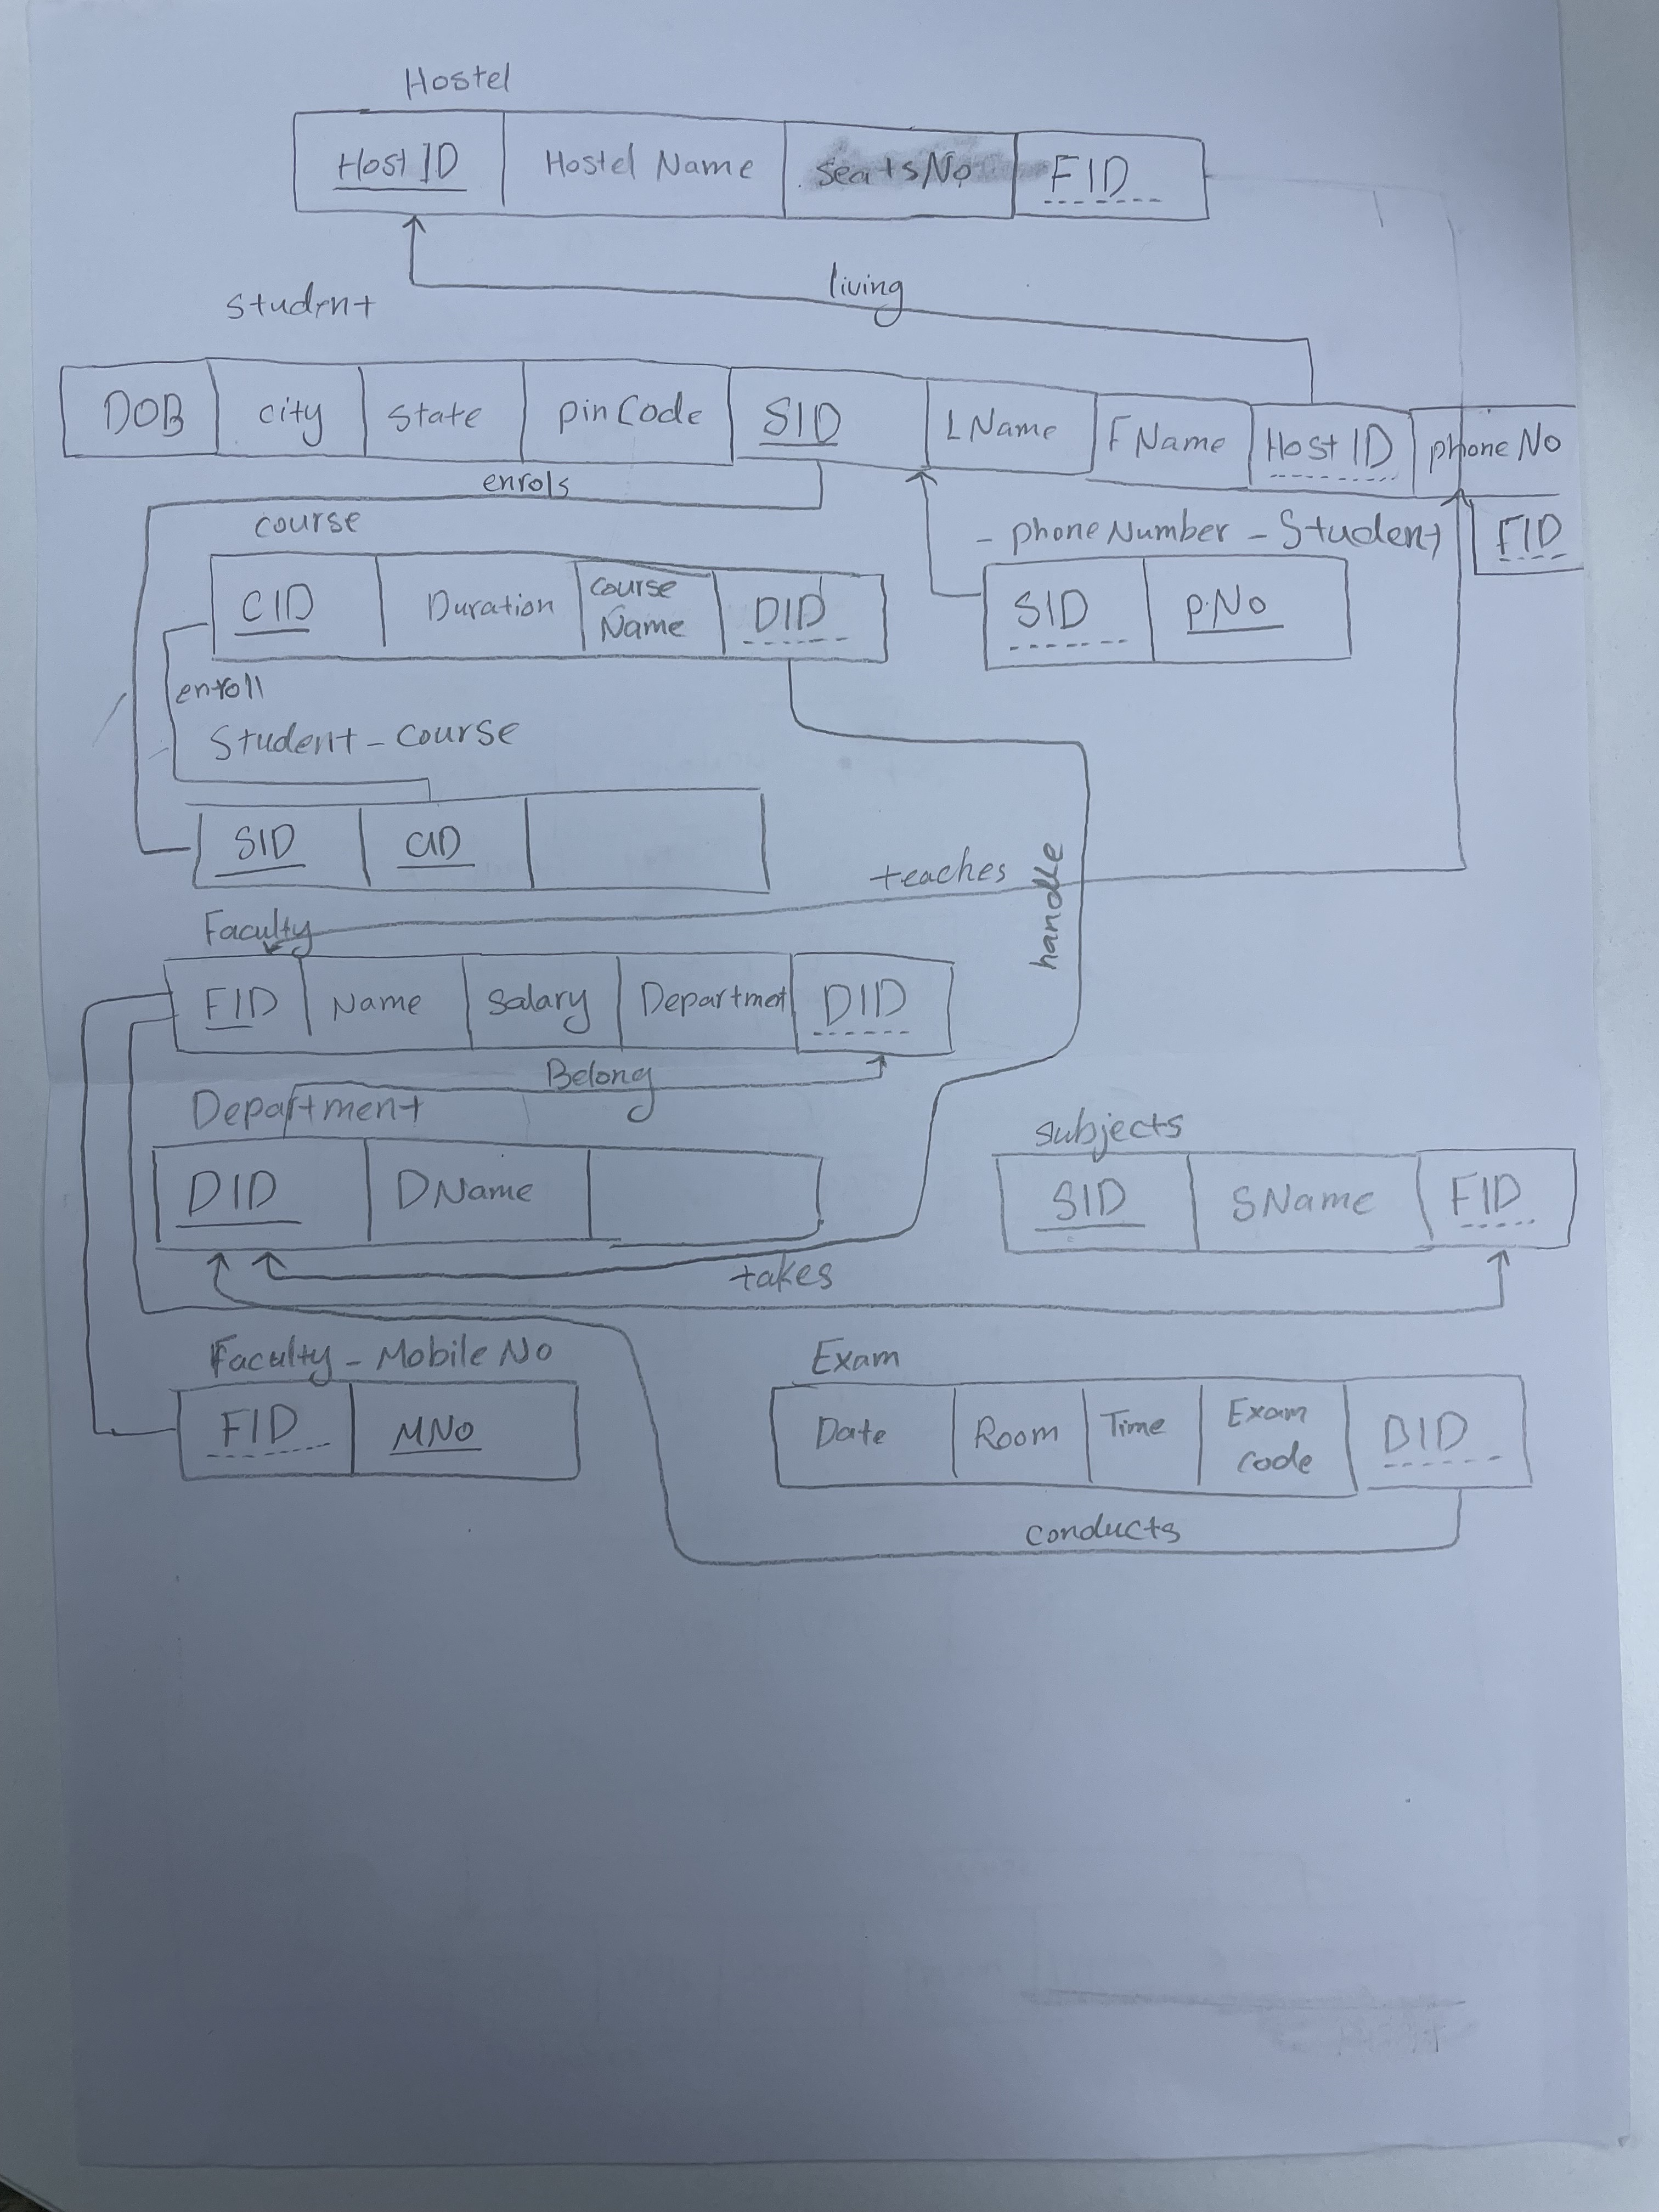 Hostel
Host ID Hostel Name SeatsNo FID
living
Student
DOB city State pinCode SID LName FName Host ID phoneNo
FID
enrols
course
- phoneNumber - Student
CID Duration course Name DID
SID P.No
enroll
Student - Course
SID CID
teaches
handle
Faculty
FID Name Salary Department DID
Belong
Department
DID DName
subjects
SID SName FID
takes
Faculty - Mobile No
FID MNo
Exam
Date Room Time Exam code DID
Conducts